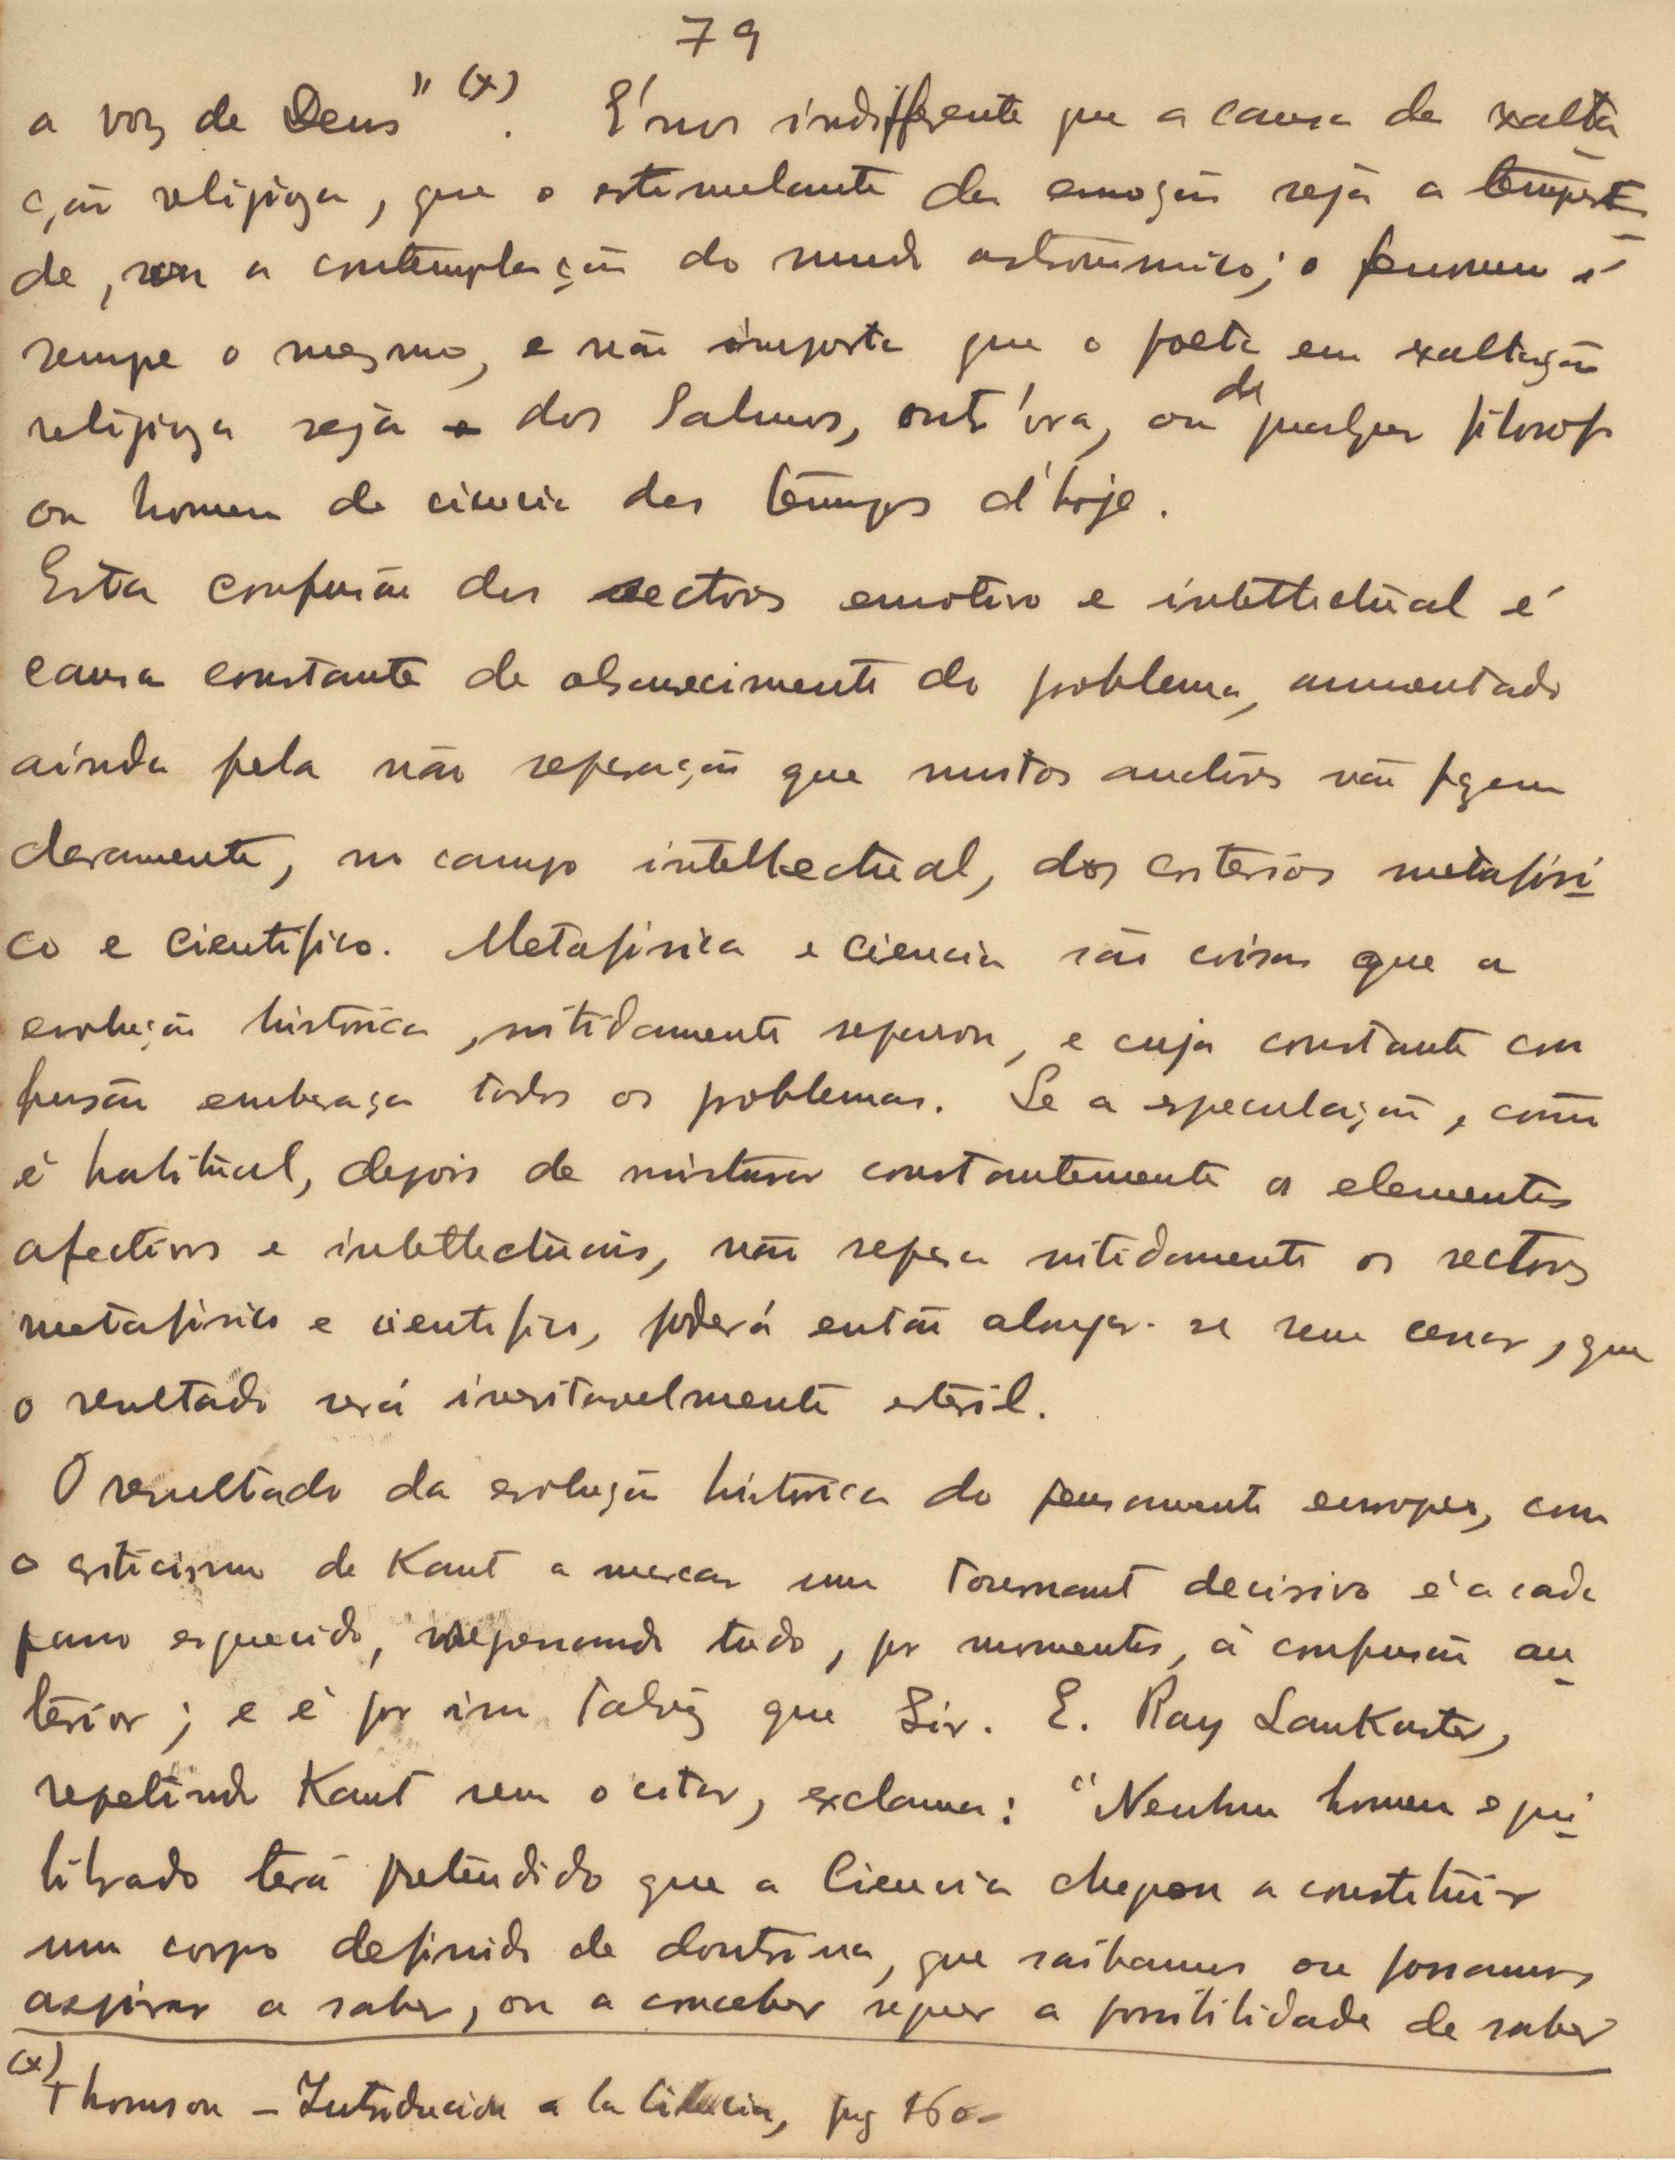 79
a voz de Deus" (x). É nos indifferente que a causa da exalta
ção religioza, que o estimulante da emoção seja a tempesta
de, seja a contemplação do mundo astronómico; o fenomeno é
sempre o mesmo, e não importa que o poeta em exaltação
religioza seja o dos Salmos, outr'ora, ou de qualquer filosofo
ou homem de ciencia dos tempos d'hoje.
Esta confusão dos sectores emotivo e intellectual é
causa constante de obscurecimento do problema, aumentado
ainda pela não separação que muitos auctores não fazem
claramente, no campo intellectual, dos criterios metafisi-
co e cientifico. Metafisica e ciencia são coisas que a
evolução historica, nitidamente separou, e cuja constante con
fusão embaraça todos os problemas. Se a especulação, como
é habitual, depois de misturar constantemente os elementos
afectivos e intellectuais, não separa nitidamente os sectores
metafisico e cientifico, poderá então alongar-se sem cessar, que
o resultado será inevitavelmente esteril.
O resultado da evolução historica do pensamento europeu, com
o criticismo de Kant a marcar um tournant decisivo é a cada
passo esquecido, regressando tudo, por momentos, á confusão an-
terior; e é por isso talvez que Sir. E. Ray Lankaster,
repetindo Kant sem o citar, exclama: "Nenhum homem equi-
librado terá pretendido que a Ciencia chegou a constituir
um corpo definido de doutrina, que saibamos ou possamos
aspirar a saber, ou a conceber sequer a possibilidade de saber
(x) Thomson – Introducion a la Ciencia, pag 160-